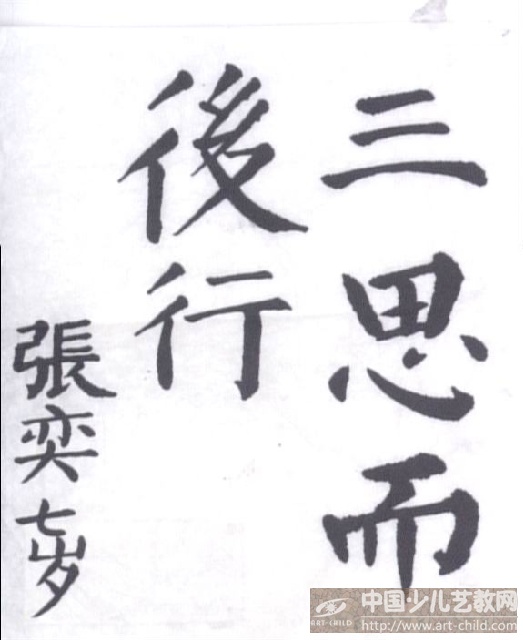 三思而
後行
張奕七岁
中国少儿艺教网
ART-CHILD
http://www.art-child.com